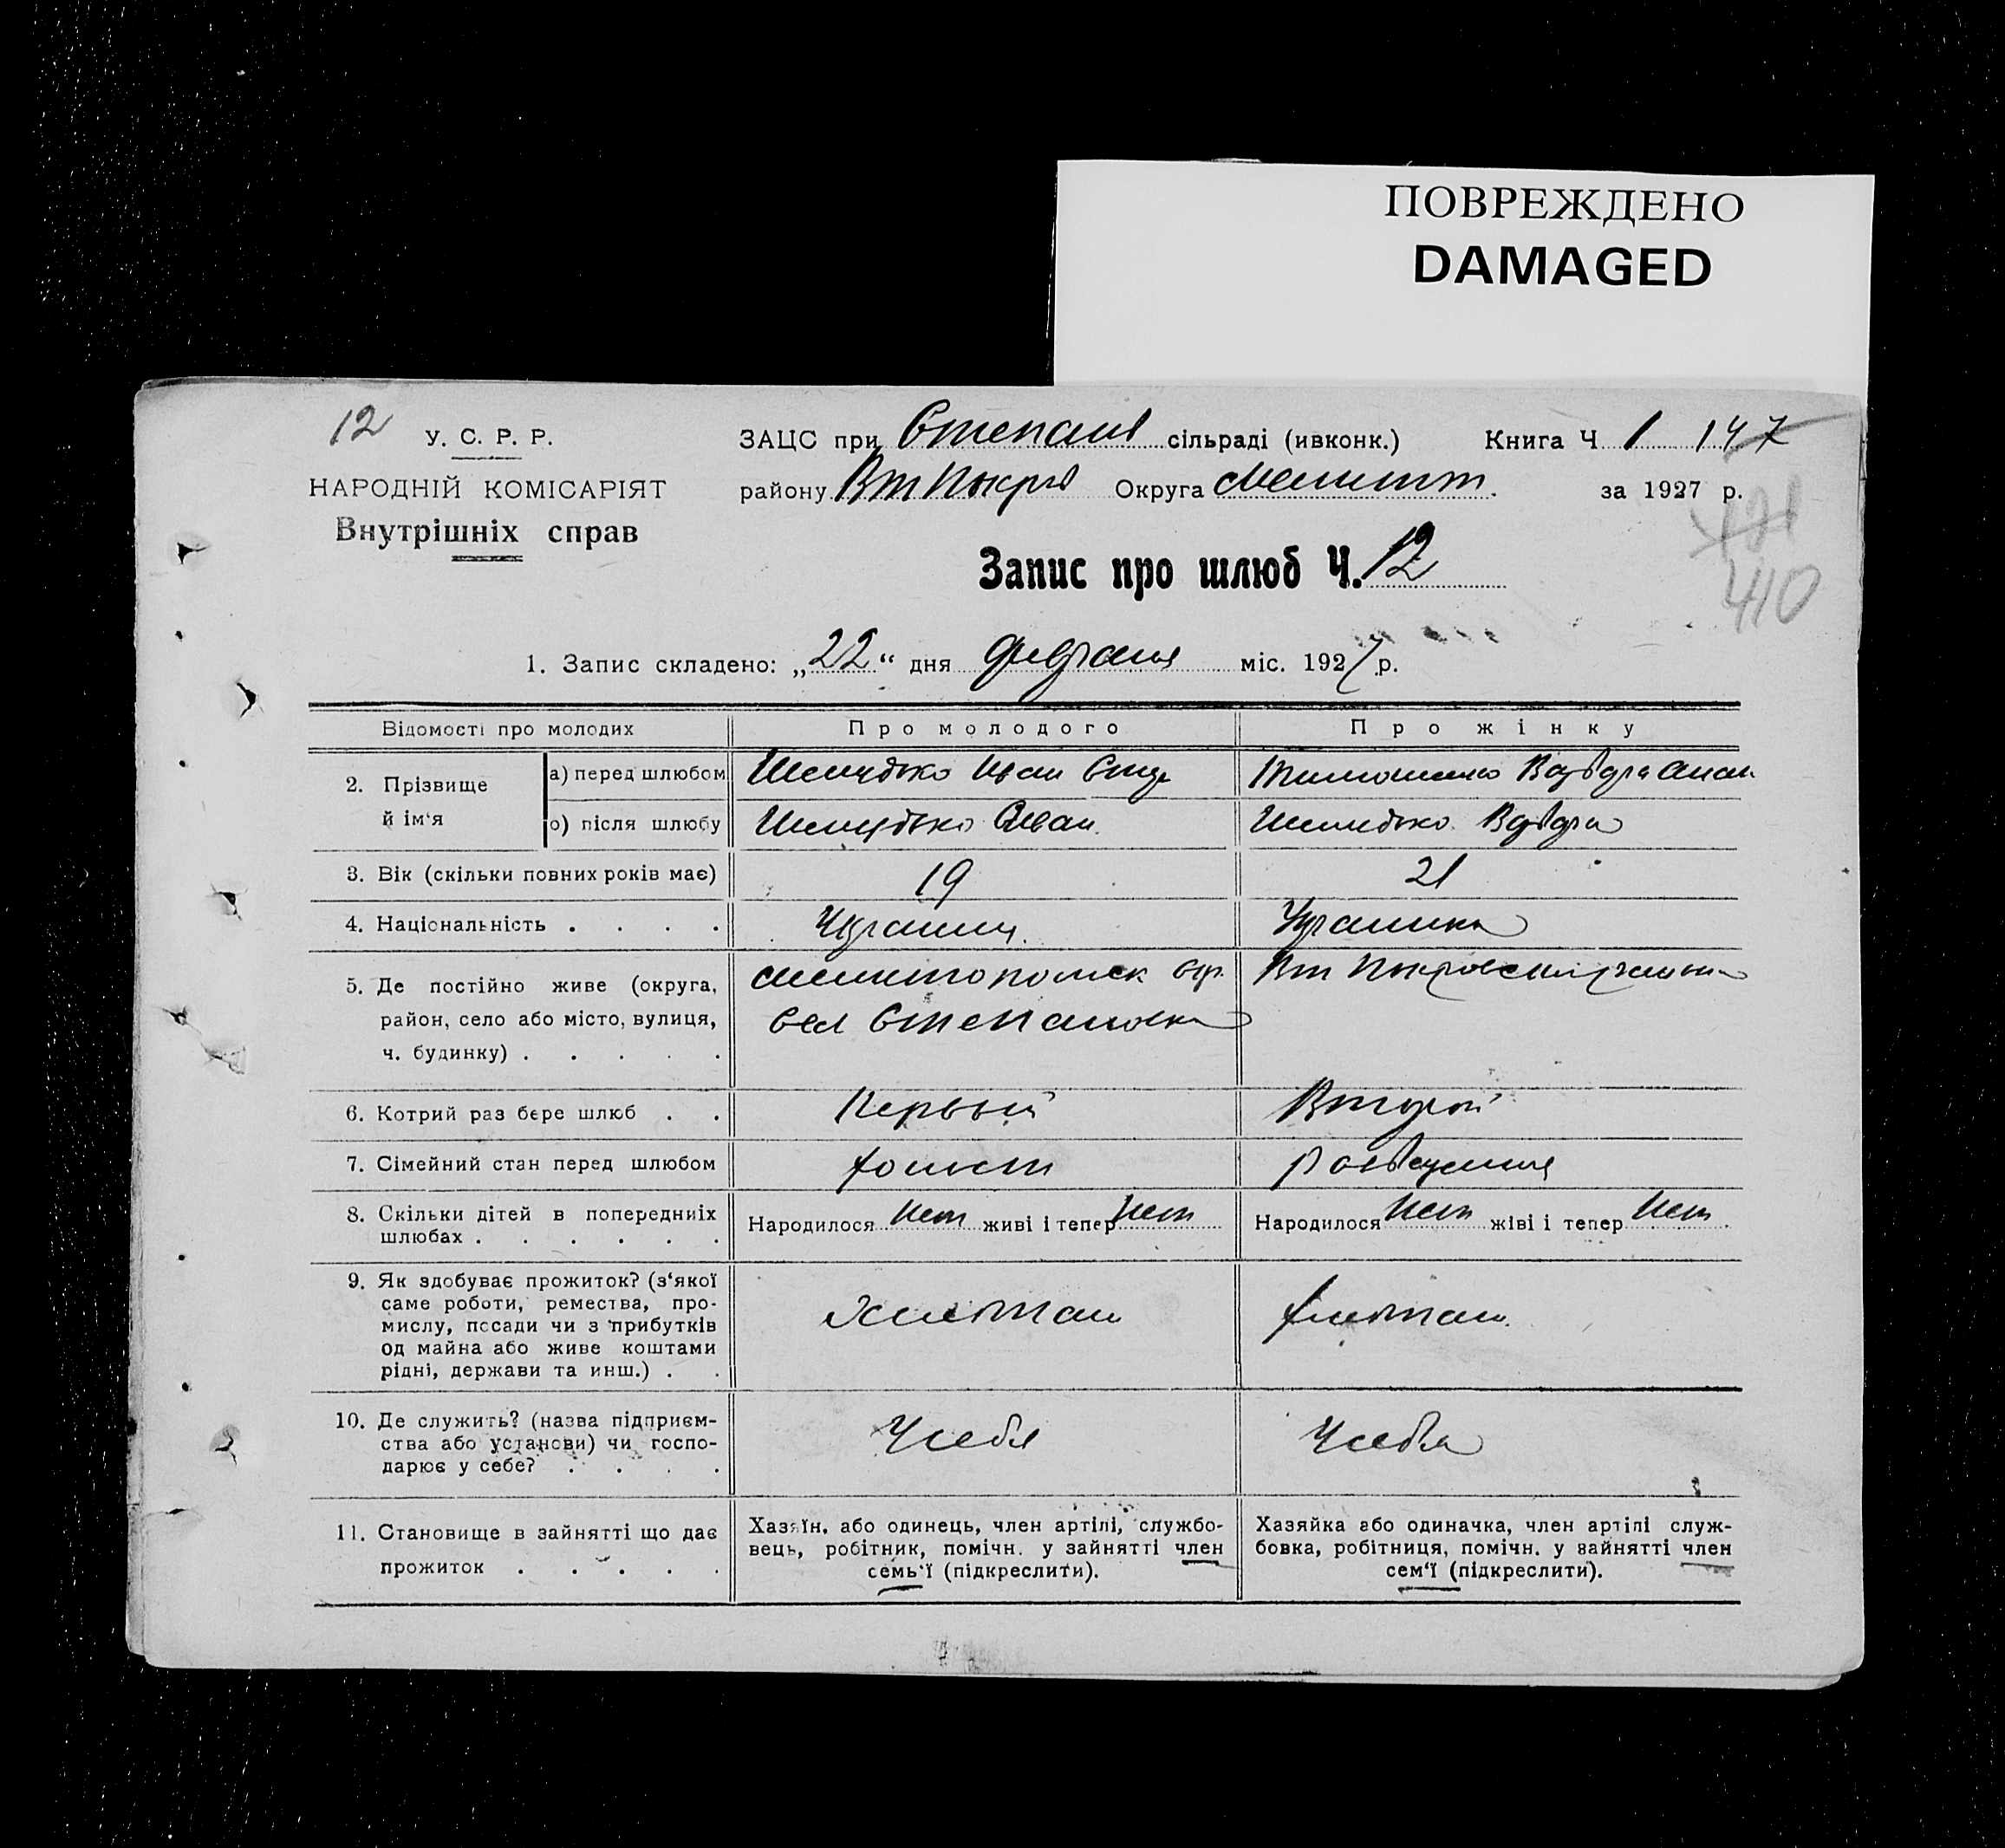 ПОВРЕЖДЕНО
DAMAGED
12
У. С. Р. Р.
НАРОДНІЙ КОМІСАРІЯТ
Внутрішніх справ
ЗАЦС при Степанів сільраді (ивконк.) Книга Ч 1 147
району Вт Покров Округа Мелитоп. за 1927 р.
410
Запис про шлюб Ч. 12
1. Запис складено: „22“ дня февраля міс. 1927 р.
Відомості про молодих Про молодого Про жінку
2. Прізвище й ім'я
а) перед шлюбом Иван Тимошенко
о) після шлюбу Иван
3. Вік (скільки повних років має) 19 21
4. Національність . . . . Украинец Украинка
5. Де постійно живе (округа, район, село або місто, вулиця, ч. будинку) . . . . .
Мелитополск окр.
сел Степановка
Вт Покровский район
6. Котрий раз бере шлюб . . Первый Второй
7. Сімейний стан перед шлюбом холост разведенная
8. Скільки дітей в попередниіх шлюбах . . . . . .
Народилося Нет живі і тепер Нет
Народилося Нет жіві і тепер Нет.
9. Як здобуває прожиток? (з'якої
саме роботи, ремества, про-
мислу, посади чи з прибутків
од майна або живе коштами
рідні, держави та инш.) . .
Хлебопаш
Хлебопаш.
10. Де служить? (назва підприєм-
ства або установи) чи госпо-
дарює у себе? . . . .
У себя
У себя
11. Становище в зайнятті що дає
прожиток . . . . .
Хазяїн, або одинець, член артілі, службо-
вець, робітник, помічн. у зайнятті член
семь'ї (підкреслити).
Хазяйка або одиначка, член артілі служ-
бовка, робітниця, помічн. у зайнятті член
сем'ї (підкреслити).